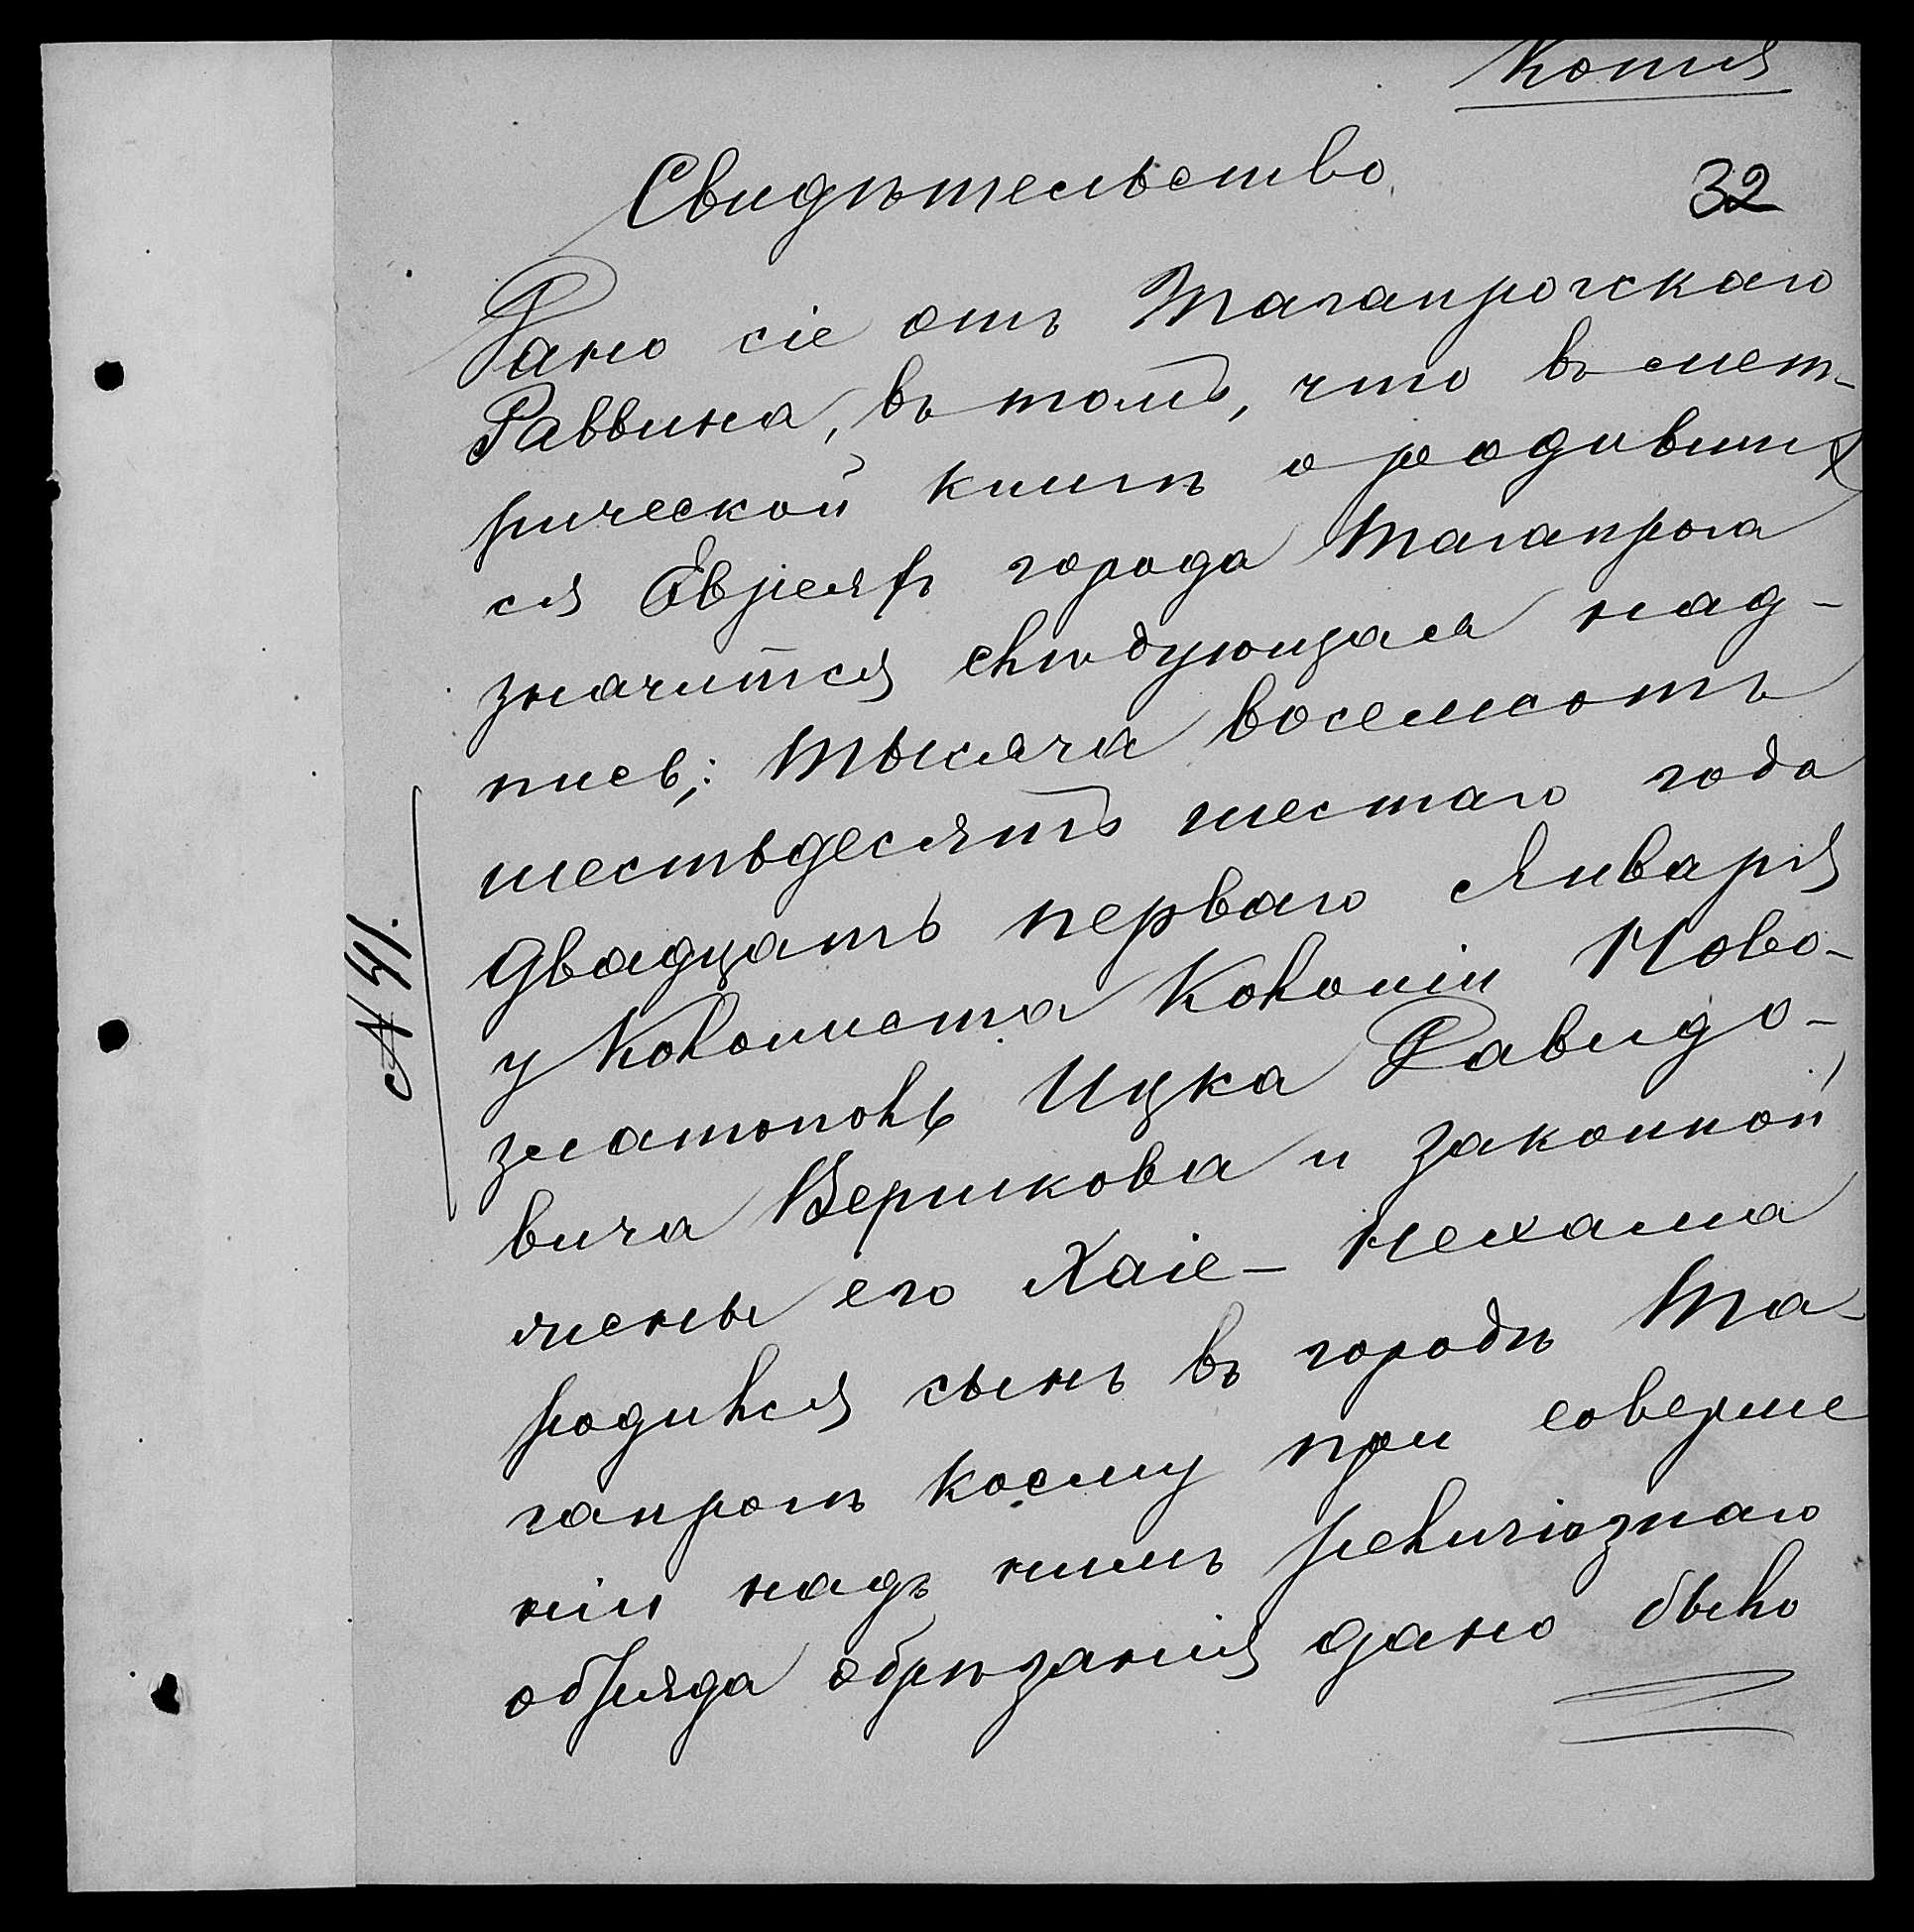 Копия
Свидѣтельство
32
Дано сіе отъ Таганрогскаго
Раввина, въ томъ, что въ мет-
рической книгѣ о родивших
ся Евреяхъ города Таганрога
значится слѣдующая над-
пись; Тысяча восемьсотъ
шестьдесятъ шестаго года
двадцать перваго Января
у Колониста Колоніи Ново-
златополь Ицка Давидо-
вича Вершкова и законной
жены его Хаіе-Нехама
родился сынъ въ городѣ Та-
ганрогѣ коему при соверше
ніи надъ нимъ религіознаго
обряда обрѣзанія дано было
№ 41.